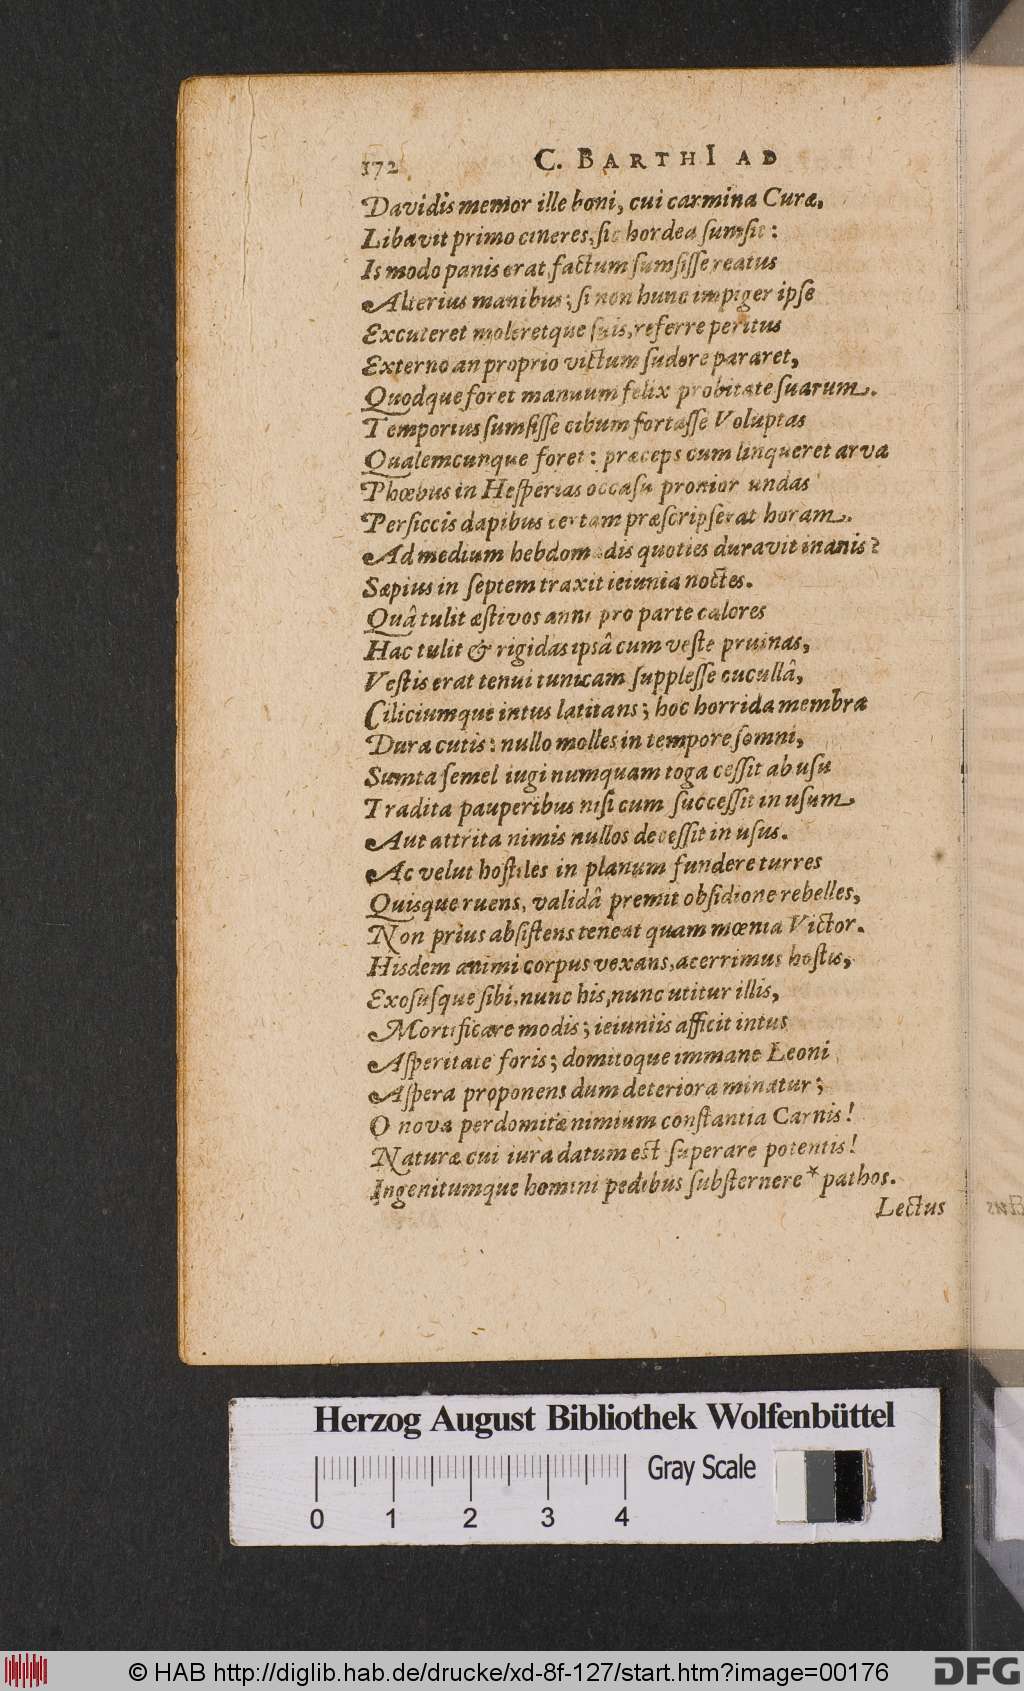 172 C. BARTHI AD
Davidis memor ille boni, cui carmina Curæ,
Libavit primo cineres, sic hordea sumsit:
Is modo panis erat, factum sumsiſſe reatus
Alterius manibus; ſi non hunc impiger ipſe
Excuteret moleretque ſuis, referre peritus
Externo an proprio victum ſudore pararet,
Quodque foret manuum felix probitate ſuarum.
Temporius ſumſiſſe cibum fortaſſe Voluptas
Qualemcunque foret: præceps cum linqueret arva
Phœbus in Heſperias occaſu pronior undas
Perſiccis dapibus certam præſcripſerat horam.
Ad medium hebdomadis quoties duravit inanis?
Sæpius in ſeptem traxit ieiunia noctes.
Quâ tulit æſtivos anni pro parte calores
Hac tulit & rigidas ipsâ cum veſte pruinas,
Veſtis erat tenui tunicam ſuppleſſe cucullâ,
Ciliciumque intus latitans; hoc horrida membra
Dura cutis: nullo molles in tempore ſomni,
Sumta ſemel iugi numquam toga ceſſit ab uſu
Tradita pauperibus niſi cum ſucceſſit in uſum
Aut attrita nimis nullos deceſſit in uſus.
Ac velut hoſtiles in planum fundere turres
Quisque ruens, validâ premit obſidione rebelles,
Non prius abſiſtens teneat quam mœnia Victor.
Hisdem animi corpus vexans, acerrimus hoſtis,
Exoſuſque ſibi, nunc his, nunc utitur illis,
Mortificare modis; ieiuniis afficit intus
Aſperitate foris; domitoque immane Leoni
Aſpera proponens dum deteriora minatur;
O nova perdomitæ nimium conſtantia Carnis!
Naturæ cui iura datum est ſuperare potentis!
Ingenitumque homini pedibus ſubſternere * pathos.
Lectus
Herzog August Bibliothek Wolfenbüttel
Gray Scale
0 1 2 3 4
© HAB http://diglib.hab.de/drucke/xd-8f-127/start.htm?image=00176
DFG